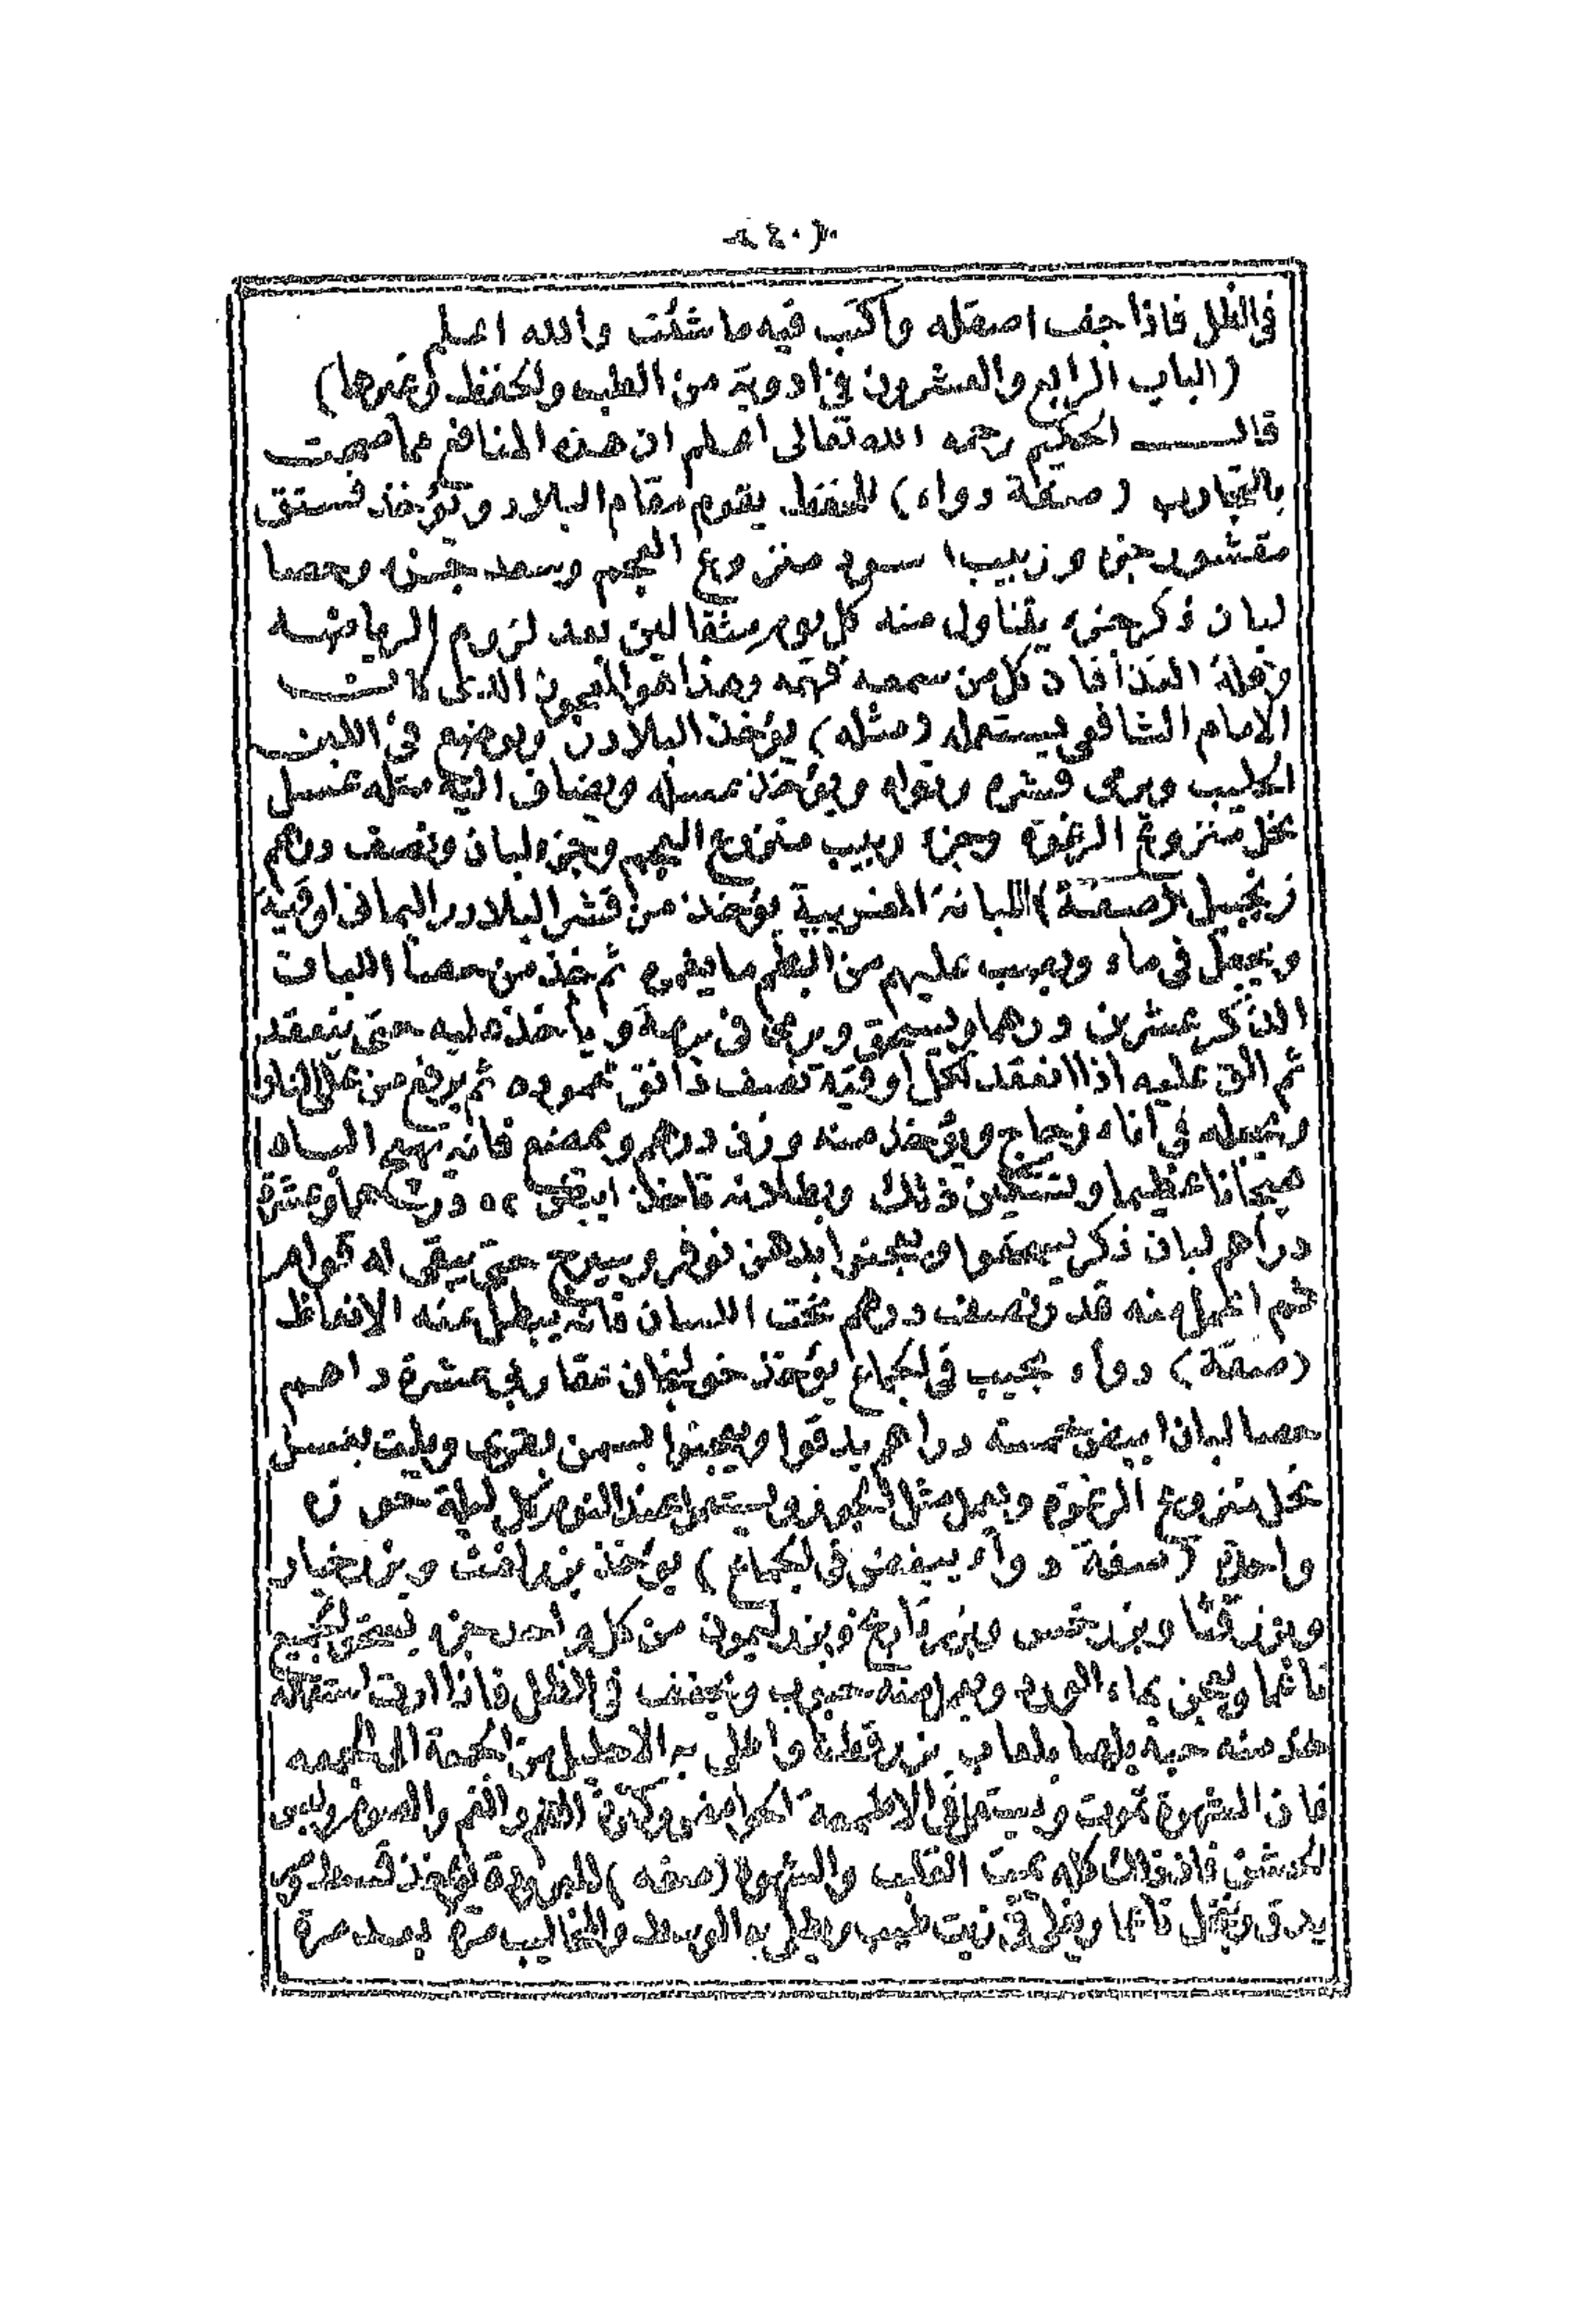 ٤٠
في الظل فاذا جف اصقله واكتب فيه ما شئت والله اعلم
(الباب الرابع والعشرون في ادوية من الطب والحفظ وغيرها)
قال الحكيم رحمه الله تعالى اعلم ان هذه المنافع مما صحت
بالتجارب (صفة دواء) للحفظ يقوم مقام البلادر وتؤخذ فستق
مقشور جزء وزبيب اسود منزوع العجم وسعد جزء وحصا
لبان ذكر جزء يتناول منه كل يوم مثقالين بعد لزوم الرياضه
وقلة الغذا فان كل من سمعه فهمه وهذا هو المعجون الذى كانت
الامام الشافعى يستعمله (مثله) يؤخذ البلادر ويوضع في اللبن
الحليب ويرمى قشره ونواه ويؤخذ عسله ويضاف اليه مثله عسل
نحل منزوع الرغوة وجزء زبيب منزوع العجم وجزء لبان ونصف درهم
زنجبيل (صفة) اللبانة المغربية يؤخذ من قشر البلادر اليمانى اوقية
ويجعل في ماء ويصب عليهم من البطم ما يغمره ثم خذ من حصا اللبان
الذكر عشرين درهما ويسحق ويرمى في برمة و يأخذ عليه حتى ينعقد
ثم الق عليه اذا انعقد لكل اوقية نصف دانق محموده ثم يرفع من على النار
ويجعله في اناء زجاج ويؤخذ منه وزن درهم ويمضغ فانه يهيج الباه
هيجانا عظيما وتسكين ذلك وبطلانه تاخذ دراهم وعشرة
دراهم لبان ذكر يسحقوا ويعجنوا بدهن نوفر وسيرج حتى يبقى له قوام
ثم اجعل منه قدر نصف درهم تحت اللسان فانه يبطل عنه الانعاظ
(صفة) دواء عجيب في الجماع يؤخذ خولنجان عقاربى عشرة داهم
حصا لبان ابيض خمسة دراهم يدقوا ويعجنوا بسمن بقرى ويلت بعسل
نحل منزوع الرغوة ويعمل مثل الجوز ويستعمل عند النوم كل ليلة جوزة
واحدة (صفة دواء يبغض في الجماع) يؤخذ بزر افث وبزر خيار
وبزر قثا وبزر خس وبزر وبزر ليمون من كل واحد جزء يسحق الجميع
ناعما ويعجن بماء الورد ويعمل منه حبوب ويجفف في الظل فاذا اردت استعماله
خذ منه حبة بلها بلعاب بزر قطنا واطلى به الاحليل من الجمعة الى الجمعه
فان الشهوة تموت ويستعمل في الاطعمة الحوامض وكثرة والصوم ولبس
الخشن فان ذلك كله يميت القلب والشهوة (صفه) يؤخذ قسط
يدق وينخل ناعما ويغلى في زيت طيب ويطلى به الوسط مرة بعد مرة